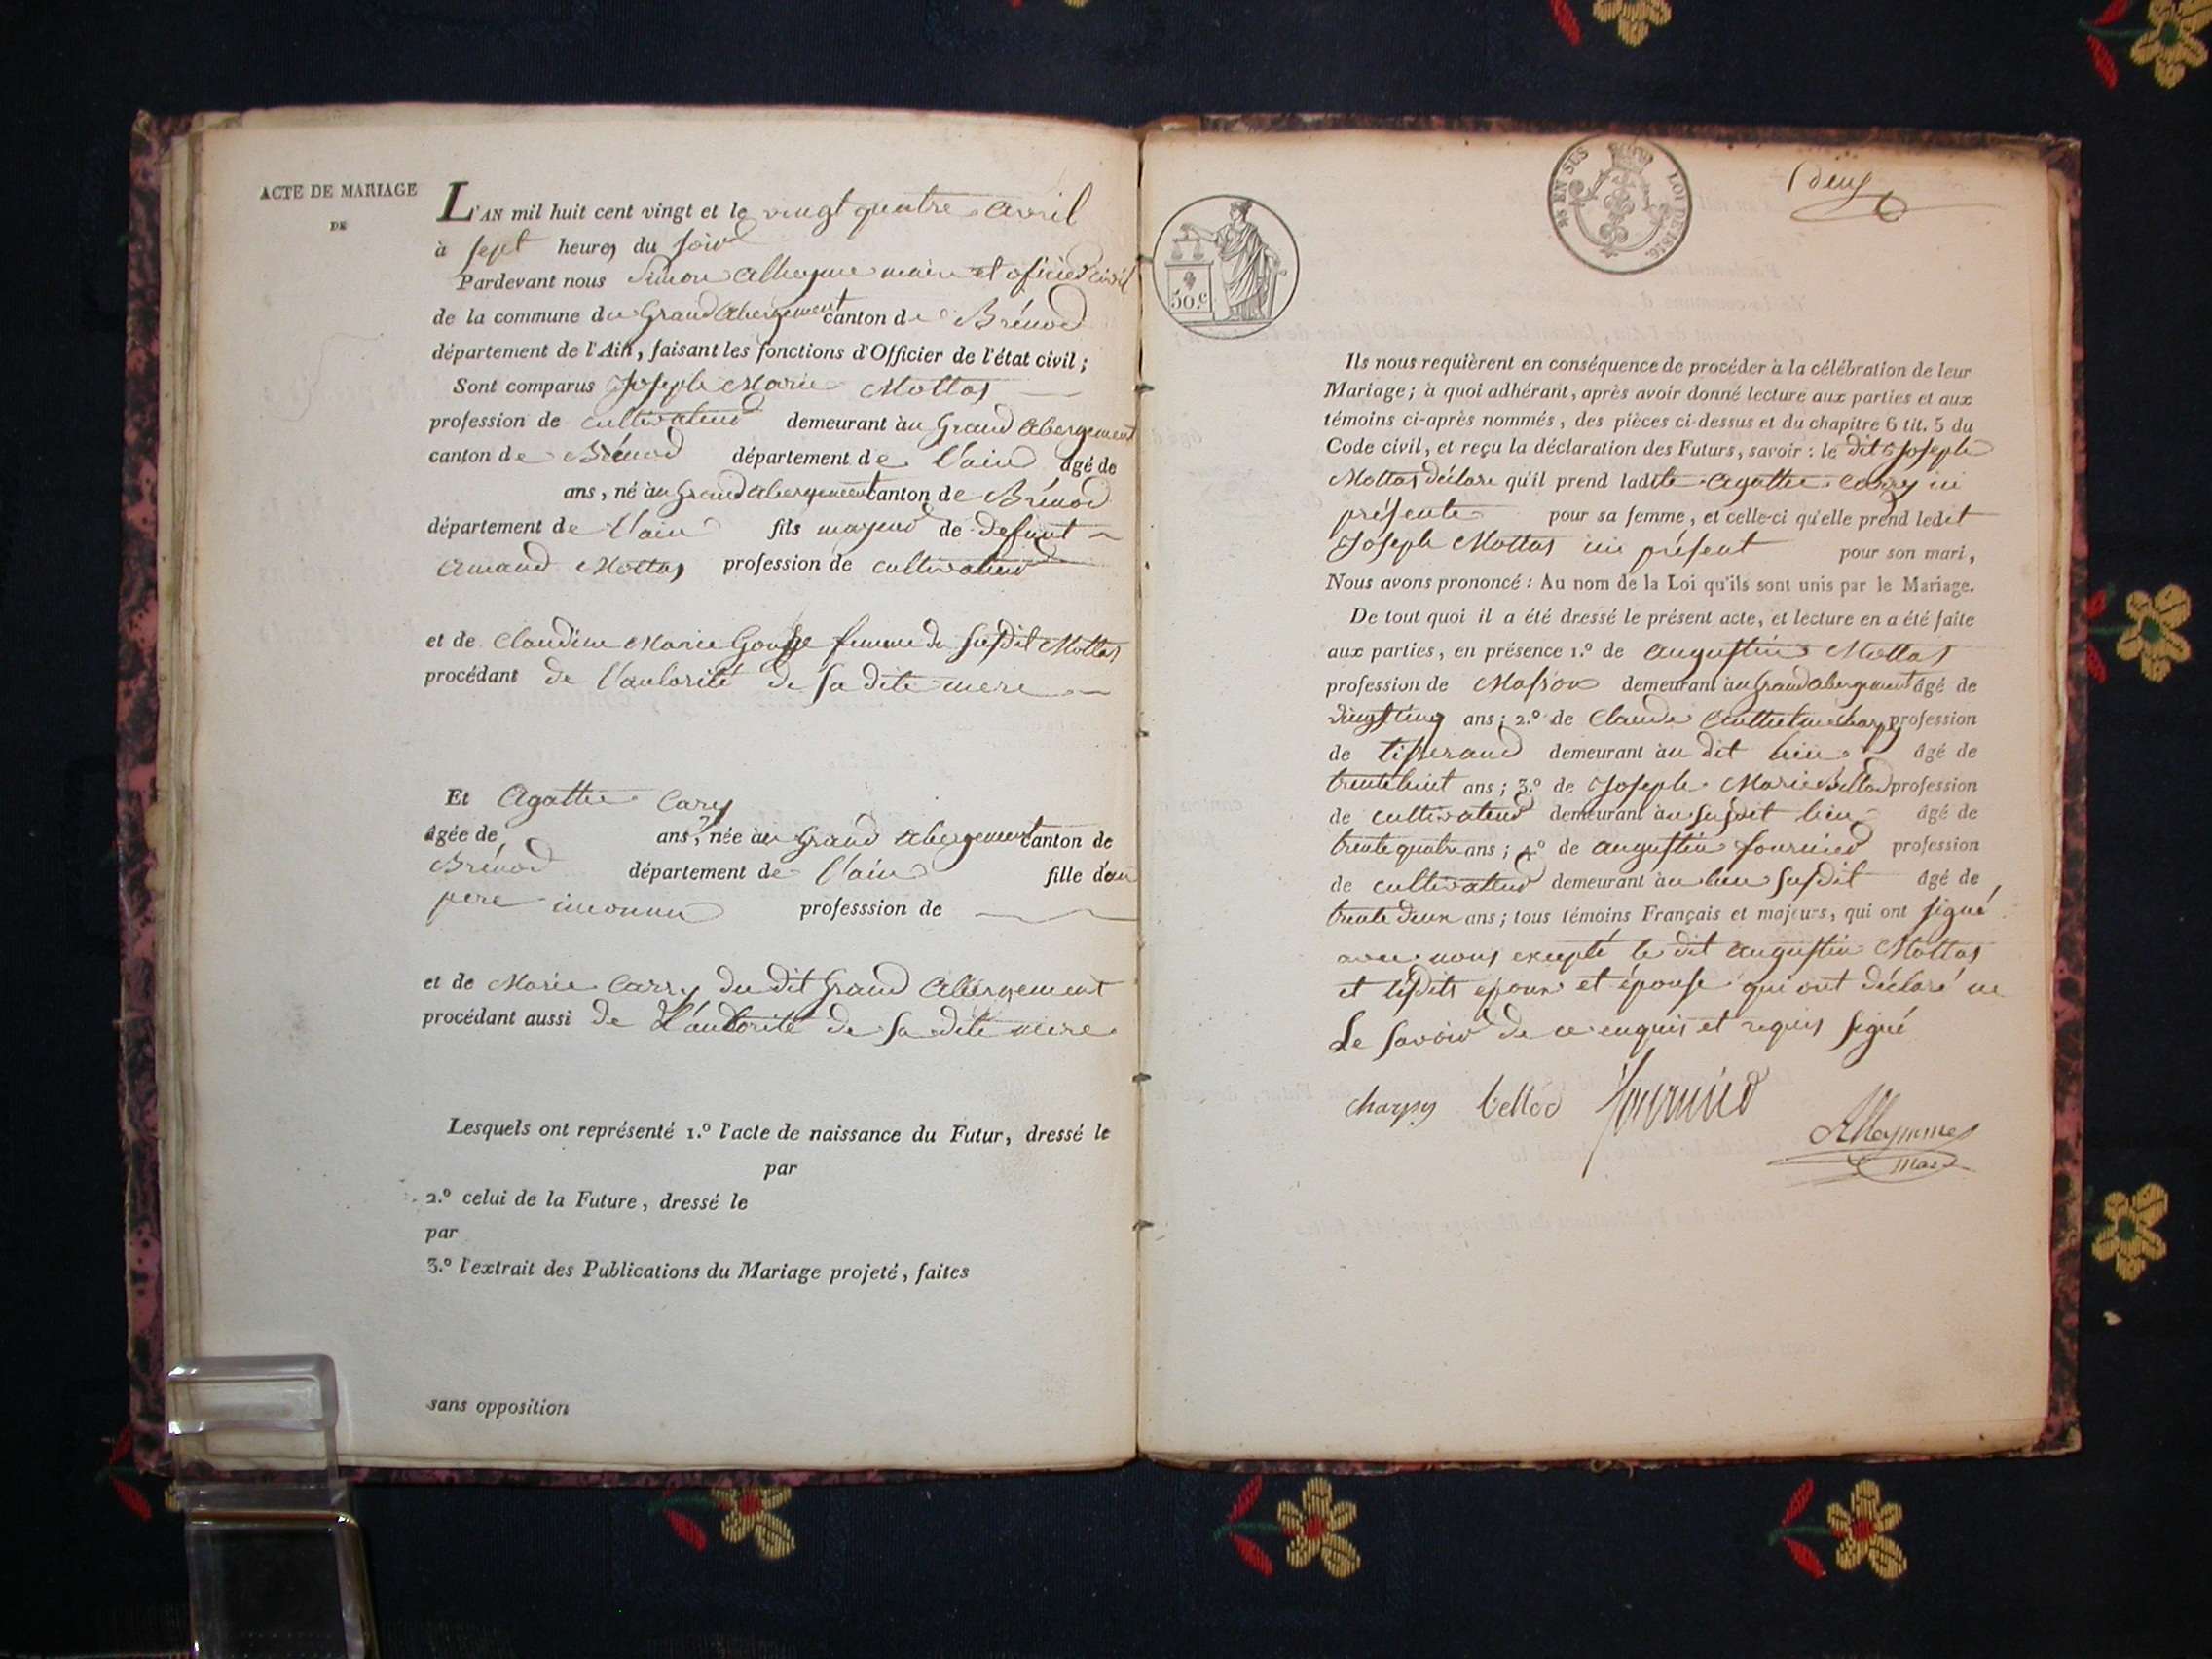 ACTE DE MARIAGE
DE
L'AN mil huit cent vingt et le vingt quatre avril
à sept heures du soir
Pardevant nous Simon Alleyme maire et oficier civil
de la commune du Grand Abergement canton de Brénod
département de l'Ain, faisant les fonctions d'Officier de l'état civil;
Sont comparus Joseph Marie Mottas
profession de cultivateur demeurant au Grand Abergement
canton de Brénod département de l'ain âgé de
ans, né au Grand abergement canton de Brénod
département de l'ain fils majeur de defunt
Amand Mottas profession de cultivateur
et de Claudine Marie femme du susdit Mottas
procédant de l'autorité de sa dite mere
Et Agathe Cary
âgée de ans, née au Grand Abergement canton de
Brénod département de l'ain fille d'un
pere inconnu professsion de
et de Marie Carry du dit Grand Abergement
procédant aussi de L'autorité de sa dite mere
Lesquels ont représenté 1.º l'acte de naissance du Futur, dressé le
par
2.º celui de la Future, dressé le
par
3.º l'extrait des Publications du Mariage projeté, faites
sans opposition
50.c
EN SUS LOI DE 1816.
deux
Ils nous requièrent en conséquence de procéder à la célébration de leur
Mariage; à quoi adhérant, après avoir donné lecture aux parties et aux
témoins ci-après nommés, des pièces ci-dessus et du chapitre 6 tit. 5 du
Code civil, et reçu la déclaration des Futurs, savoir: le dit Joseph
Mottas déclare qu'il prend ladite Agathe Carry ici
présente pour sa femme, et celle-ci qu'elle prend ledit
Joseph Mottas ici présent pour son mari,
Nous avons prononcé: Au nom de la Loi qu'ils sont unis par le Mariage.
De tout quoi il a été dressé le présent acte, et lecture en a été faite
aux parties, en présence 1.º de augustin Mottas
profession de Masson demeurant au Grand abergement âgé de
vingt cinq ans; 2.º de Claude Charpy profession
de tisserand demeurant au dit lieu âgé de
trente huit ans; 3.º de Joseph Marie Bellod profession
de cultivateur demeurant au susdit lieu âgé de
trente quatre ans; 4.º de augustin fournier profession
de cultivateur demeurant au lieu susdit âgé de
trente deux ans; tous témoins Français et majeurs, qui ont signé
avec nous excepté le dit augustin Mottas
et lesdits epoux et épouse qui ont déclaré ne
Le savoir de ce enquis et requis signé
charpy bellod fournier
Alleymme
mae